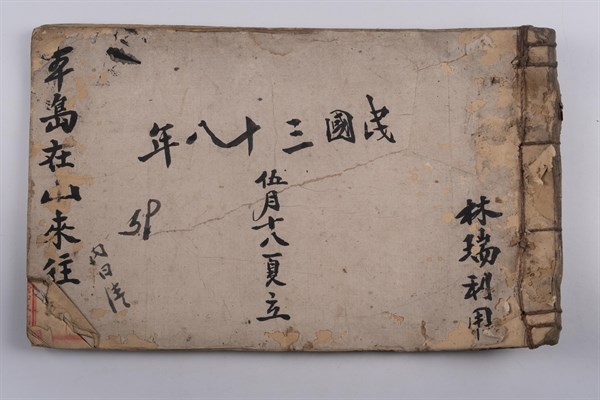 林瑞利用
民國三十八年
伍月十八夏立
車島在山來往